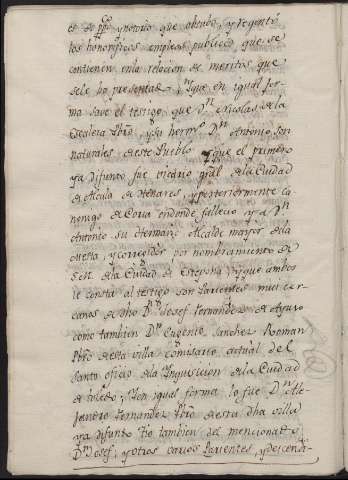 es de ppco y notorio que obtubo, y regentó
los honorificos empleos publicos que se
contienen en la relacion de meritos que
se le ha presentado, y que en igual for-
ma save el testigo que Dn. Nicolas de la
Escalera Pbro, y su hermo. Dn. Antonio, son
naturales de este Pueblo, y que el primero
ya difunto fue vicario gral de la Ciudad
de Alcala de Henares, y posteriormente ca-
nonigo de Coria en donde fallecio y a Dn.
Antonio su Hermano Alcalde mayor de la
cuesta, y correxidor por nombramiento de
S.M. de la Ciudad de Estepona, y que ambos
le consta al testigo son Parientes mui cer-
canos de dho Dn. Josef Fernandez de Ayuso
como tambien Dn. Eugenio Sanchez Roman
Pbro de esta villa comisario actual del
Santo oficio de la Inquisicion de la Ciudad
de toledo, y en igual forma lo fue Dn. Ale-
jandro Fernandez Pbro de esta dha villa
ya difunto tio tambien del mencionado
Dn. Josef, y otros varios Parientes, y descend-